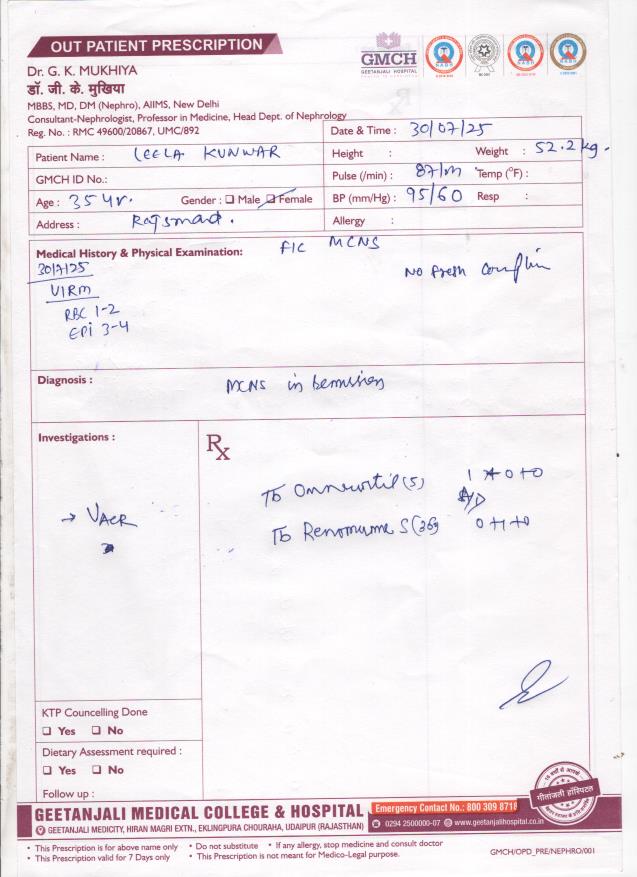 OUT PATIENT PRESCRIPTION
GMCH
GEETANJALI HOSPITAL
Dr. G. K. MUKHIYA
डॉ. जी. के. मुखिया
MBBS, MD, DM (Nephro), AIIMS, New Delhi
Consultant-Nephrologist, Professor in Medicine, Head Dept. of Nephrology
Reg. No. : RMC 49600/20867, UMC/892
Date & Time : 30/07/25
Patient Name : LEELA KUNWAR
Height : Weight : 52.2 kg.
GMCH ID No.:
Pulse (/min) : 87/m Temp (°F) :
Age : 35 yr. Gender : ☐ Male ☑ Female
BP (mm/Hg) : 95/60 Resp :
Address : Rajsmand.
Allergy :
Medical History & Physical Examination: F/C MCNS
30/7/25
No fresh complain
U/RM
RBC 1-2
EPI 3-4
Diagnosis : MCNS in remission
Investigations :
Rx
Tb Omnacortil (5) 1+0+0
A/D
→ UACR
Tb Renomume S (360) 0+1+0
KTP Councelling Done
☐ Yes ☐ No
Dietary Assessment required :
☐ Yes ☐ No
Follow up :
गीतांजली हॉस्पिटल
GEETANJALI MEDICAL COLLEGE & HOSPITAL
Emergency Contact No.: 800 309 8718
GEETANJALI MEDICITY, HIRAN MAGRI EXTN., EKLINGPURA CHOURAHA, UDAIPUR (RAJASTHAN)
0294 2500000-07 www.geetanjalihospital.co.in
• This Prescription is for above name only • Do not substitute • If any allergy, stop medicine and consult doctor
• This Prescription valid for 7 Days only • This Prescription is not meant for Medico-Legal purpose.
GMCH/OPD_PRE/NEPHRO/001